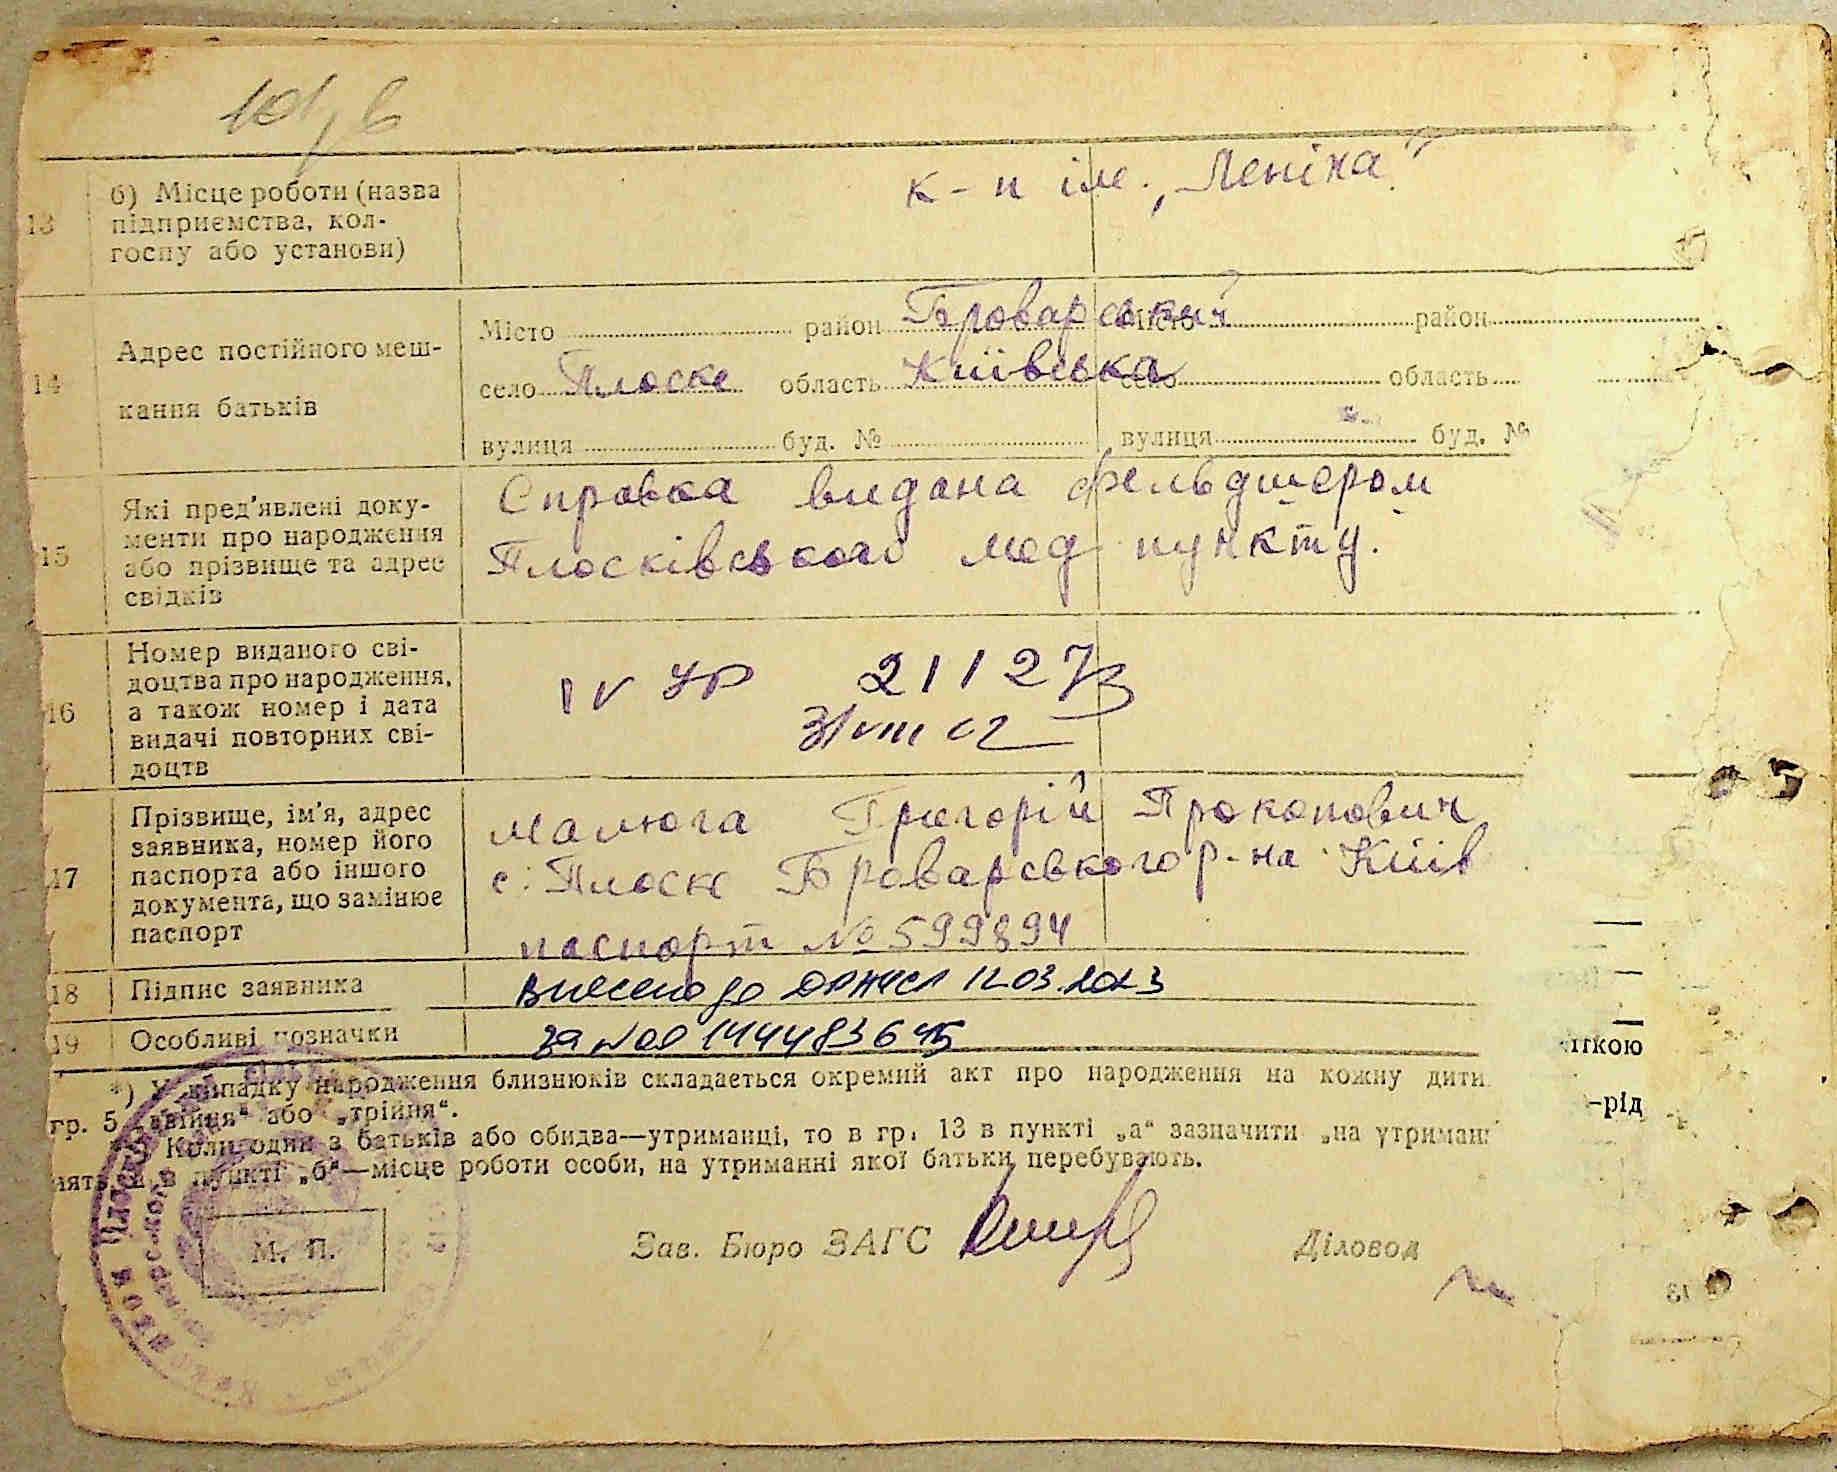 13 б) Місце роботи (назва
підприємства, кол-
госпу або установи)
к-п ім. „Леніна"
14 Адрес постійного меш-
кання батьків
Місто район Броварський місто район
село Плоске область Київська село область
вулиця буд. № вулиця буд. №
15 Які пред'явлені доку-
менти про народження
або прізвище та адрес
свідків
Справка видана фельдшером
Плосківського мед пункту.
16 Номер виданого сві-
доцтва про народження,
а також номер і дата
видачі повторних сві-
доцтв
IV УР 211273
31 VIII
17 Прізвище, ім'я, адрес
заявника, номер його
паспорта або іншого
документа, що замінює
паспорт
Малюга Григорій Прокопович
с. Плоске Броварського р-на Київ
паспорт № 599894
18 Підпис заявника
Внесено до ДРАЦСГ 12.03.2023
19 Особливі позначки
за №00144483645
*) У випадку народження близнюків складається окремий акт про народження на кожну дити
гр. 5 „двійня" або „трійня".
Коли один з батьків або обидва—утриманці, то в гр. 13 в пункті „а" зазначити „на утриман
в пункті „б"—місце роботи особи, на утриманні якої батьки перебувають.
іткою
-рід
М. П.
Зав. Бюро ЗАГС
Діловод